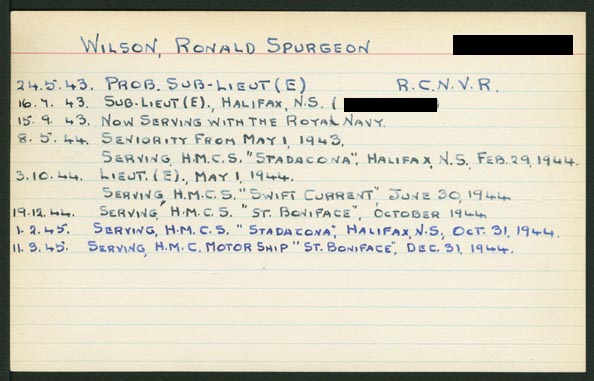 WILSON, RONALD SPURGEON
24.5.43. PROB. SUB-LIEUT (E) R.C.N.V.R.
16.7.43. SUB-LIEUT (E)., HALIFAX, N.S. (
15.9.43. NOW SERVING WITH THE ROYAL NAVY.
8.5.44. SENIORITY FROM MAY 1, 1943.
SERVING, H.M.C.S. "STADACONA", HALIFAX, N.S, FEB. 29, 1944.
3.10.44. LIEUT. (E)., MAY 1, 1944.
SERVING, H.M.C.S. "SWIFT CURRENT" JUNE 30, 1944
19.12.44. SERVING, H.M.C.S. "ST. BONIFACE", OCTOBER 1944
1.2.45. SERVING, H.M.C.S. "STADACONA", HALIFAX, N.S, OCT. 31, 1944.
11.3.45. SERVING, H.M.C. MOTOR SHIP "ST. BONIFACE", DEC. 31, 1944.